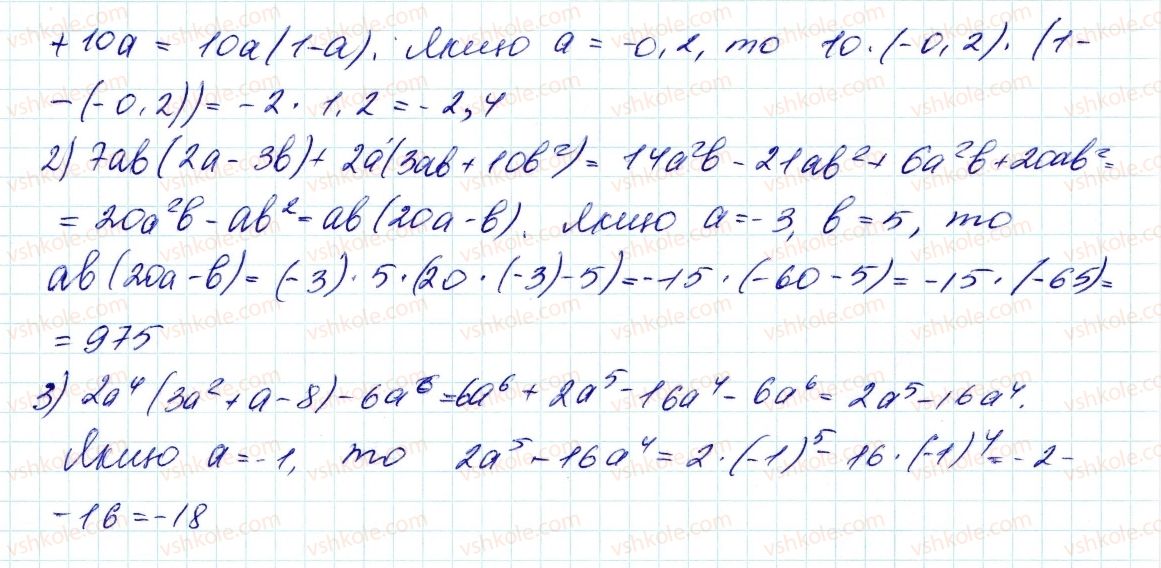 +10a = 10a(1-a). Якщо a = -0,2, то 10·(-0,2)·(1-
-(-0,2)) = -2·1,2 = -2,4
2) 7ab(2a-3b)+2a(3ab+10b²) = 14a²b-21ab²+6a²b+20ab² =
= 20a²b-ab² = ab(20a-b). Якщо a=-3, b=5, то
ab(20a-b) = (-3)·5·(20·(-3)-5) = -15·(-60-5) = -15·(-65) =
= 975
3) 2a⁴(3a²+a-8)-6a⁶ = 6a⁶+2a⁵-16a⁴-6a⁶ = 2a⁵-16a⁴.
Якщо a=-1, то 2a⁵-16a⁴ = 2·(-1)⁵-16·(-1)⁴ = -2-
-16 = -18